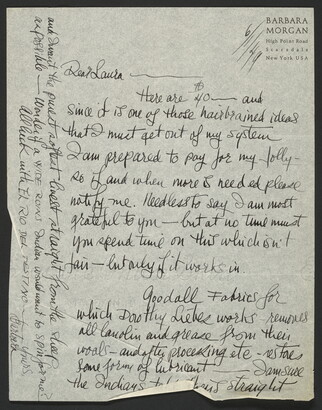 BARBARA
MORGAN
High Point Road
Scarsdale
New York USA
6/1/49
Dear Laura —
Here are $40 — and
since it is one of those hairbrained ideas
that I must get out of my system
I am prepared to pay for my folly —
so if and when more is needed please
notify me. Needless to say I am most
grateful to you — but at no time must
you spend time on this which isn't
fair — but only if it works in.
Goodall Fabrics for
which Dorothy Liebes works — removes
all lanolin and grease from their
wools — and after processing etc — restores
some form of lubricant — I am sure
the Indians straight
and want the purest softest loveliest straight from the sheep
possible — Wonder if a Indian would want to spin for me?
All luck with
Barbara